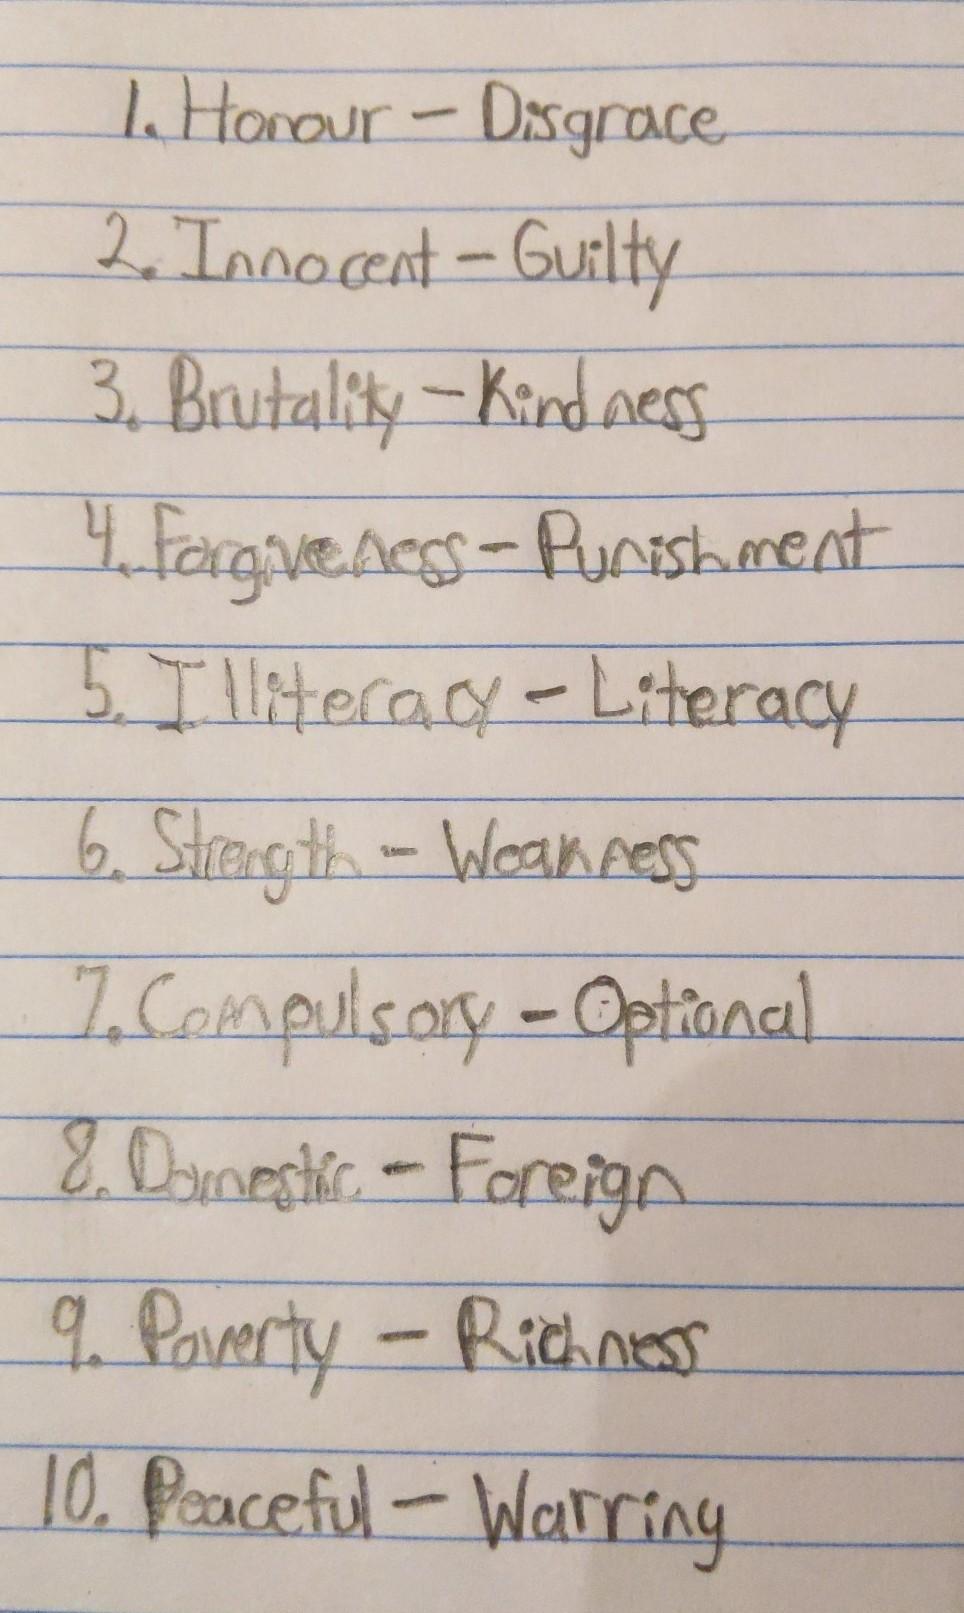 1. Honour - Disgrace
2. Innocent - Guilty
3. Brutality - Kindness
4. Forgiveness - Punishment
5. Illiteracy - Literacy
6. Strength - Weakness
7. Compulsory - Optional
8. Domestic - Foreign
9. Poverty - Richness
10. Peaceful - Warring